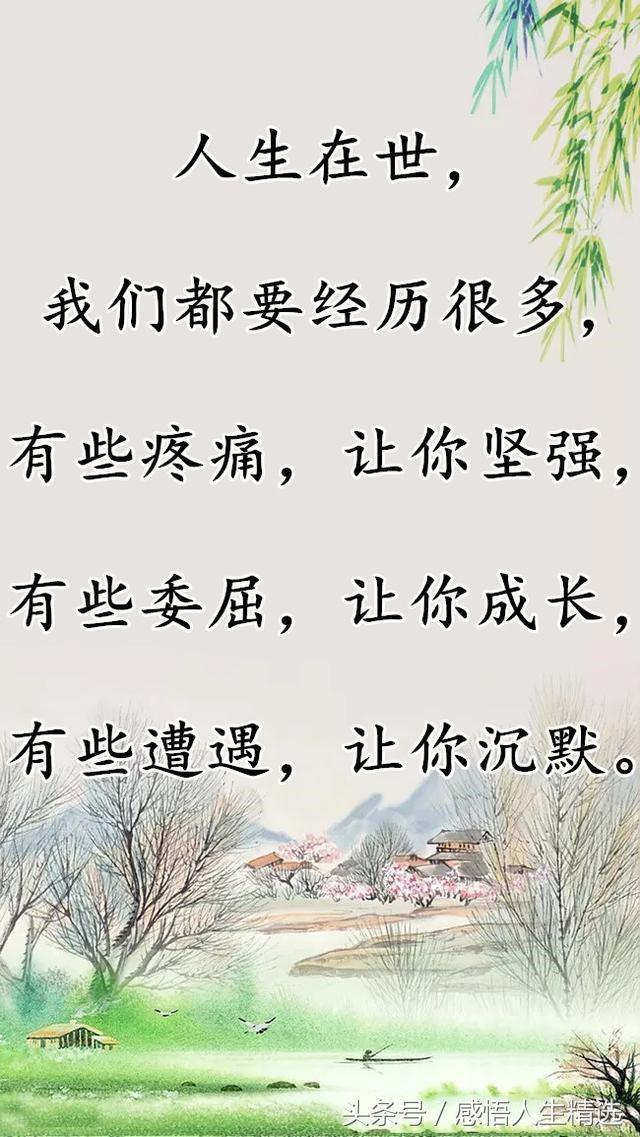 人生在世，
我们都要经历很多，
有些疼痛，让你坚强，
有些委屈，让你成长，
有些遭遇，让你沉默。
头条号 / 感悟人生精选